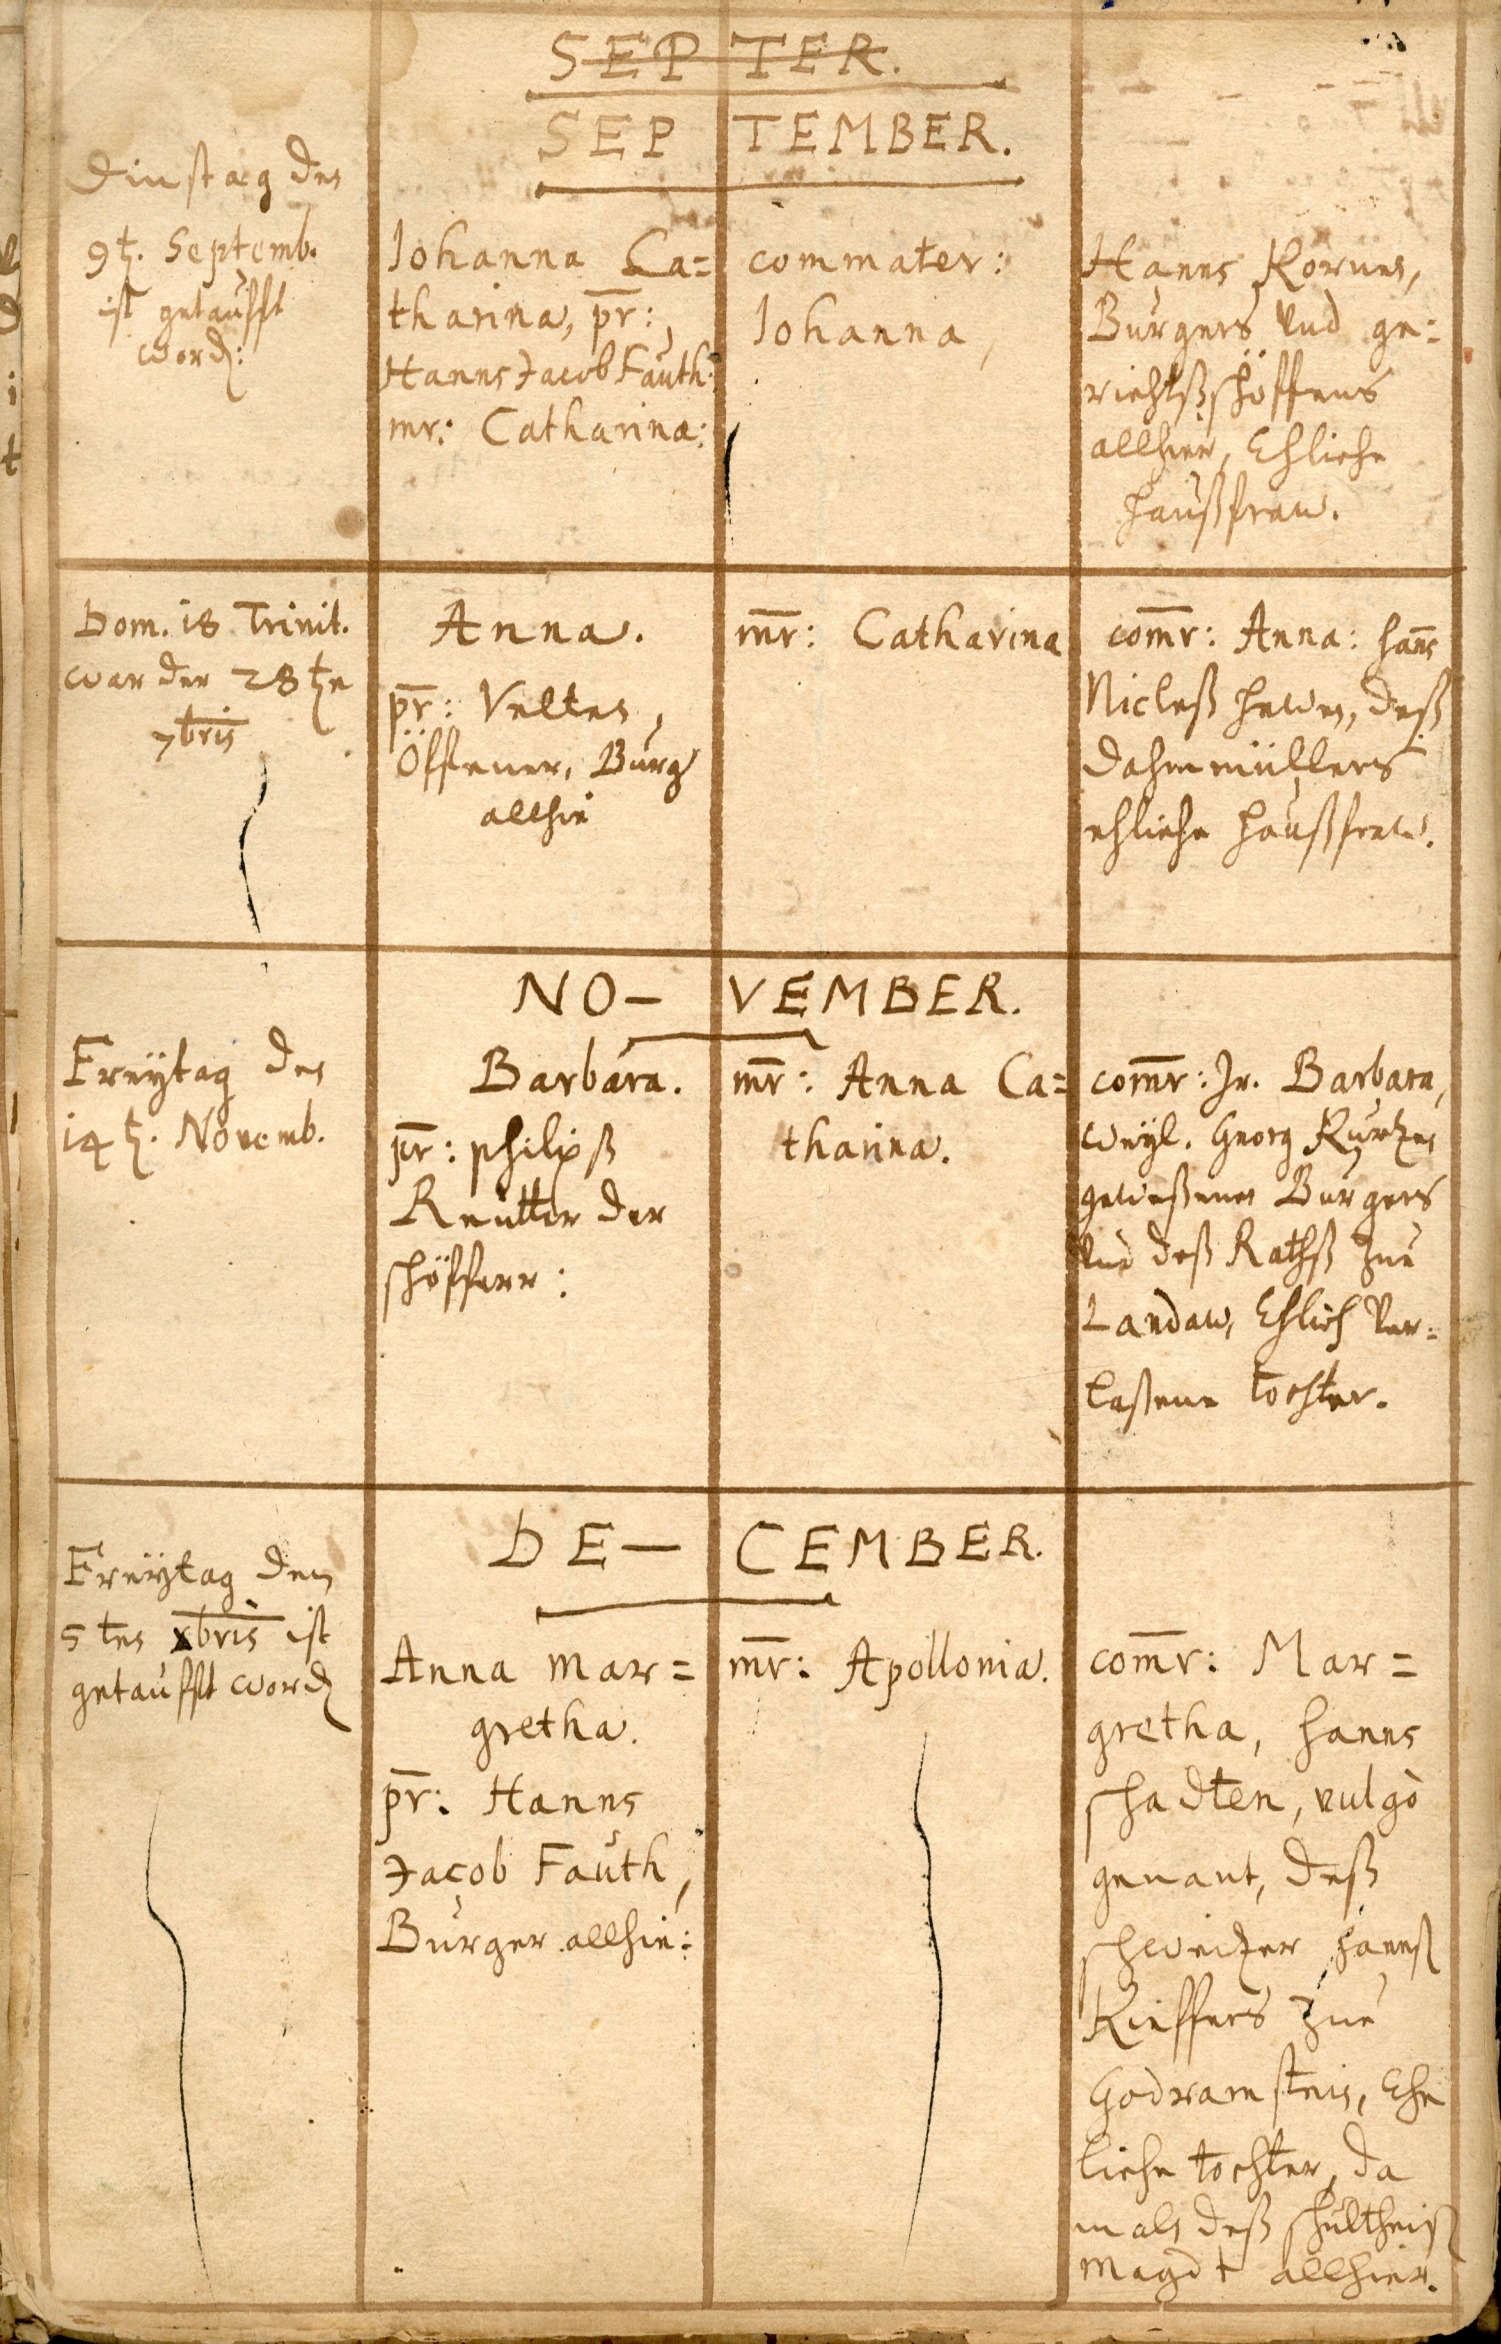 SEP TER.
SEP TEMBER.
Dinstag des
9t. Septemb.
ist getaufft
word:
Johanna Ca=
tharina, pr:,
Hanns Jacob Fauth:
mr: Catharina:
commater:
Johanna,
Hanns Kornes,
Burgers vnd ge=
richtßschöffens
allhier, Ehliche
haußfraw.
Dom. 18 Trinit.
war der 28 te
7bris
Anna.
pr: Veltes,
Öffener, Burg
allhie
mr: Catharina
comr: Anna: hans
Nicleß hewes, deß
dahmmüllers
ehliche haußfraw.
NO- VEMBER.
Freÿtag des
14 t. Novemb.
Barbara.
pr: philipß
Reutter der
schöfferr:
mr: Anna Ca=
tharina.
comr: Jr. Barbara,
weÿl. Georg Kurtzes
geweßenes Burgers
vnd deß Rathß zue
Landaw, Ehlich ver=
laßene tochter.
DE- CEMBER.
Freÿtag den
5 tes xbris ist
getaufft word
Anna Mar=
gretha.
pr: Hanns
Jacob Fauth,
Burger allhie:
mr: Apollonia.
comr: Mar=
gretha, hanns
schadten, vulgò
genant, deß
schweitzer hannß
Kieffers zue
Godramstein, Ehe
liche tochter, da
mals deß schultheiß
magdt allhier.